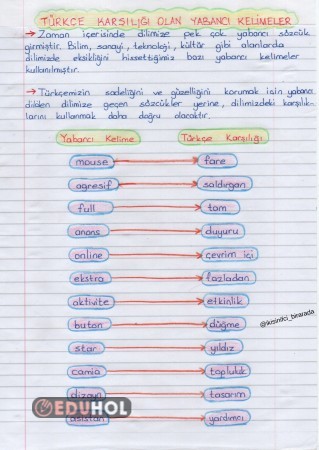 TÜRKÇE KARŞILIĞI OLAN YABANCI KELİMELER
→ Zaman içerisinde dilimize pek çok yabancı sözcük
girmiştir. Bilim, sanayi, teknoloji, kültür gibi alanlarda
dilimizde eksikliğini hissettiğimiz bazı yabancı kelimeler
kullanılmıştır.
→ Türkçemizin sadeliğini ve güzelliğini korumak için yabancı
dilden dilimize geçen sözcükler yerine, dilimizdeki karşılık-
larını kullanmak daha doğru olacaktır.
Yabancı Kelime Türkçe Karşılığı
mouse → fare
agresif → saldırgan
full → tam
anons → duyuru
online → çevrim içi
ekstra → fazladan
aktivite → etkinlik
buton → düğme
@ikisinifci_birarada
star → yıldız
camia → topluluk
dizayn → tasarım
EDUHOL
asistan → yardımcı